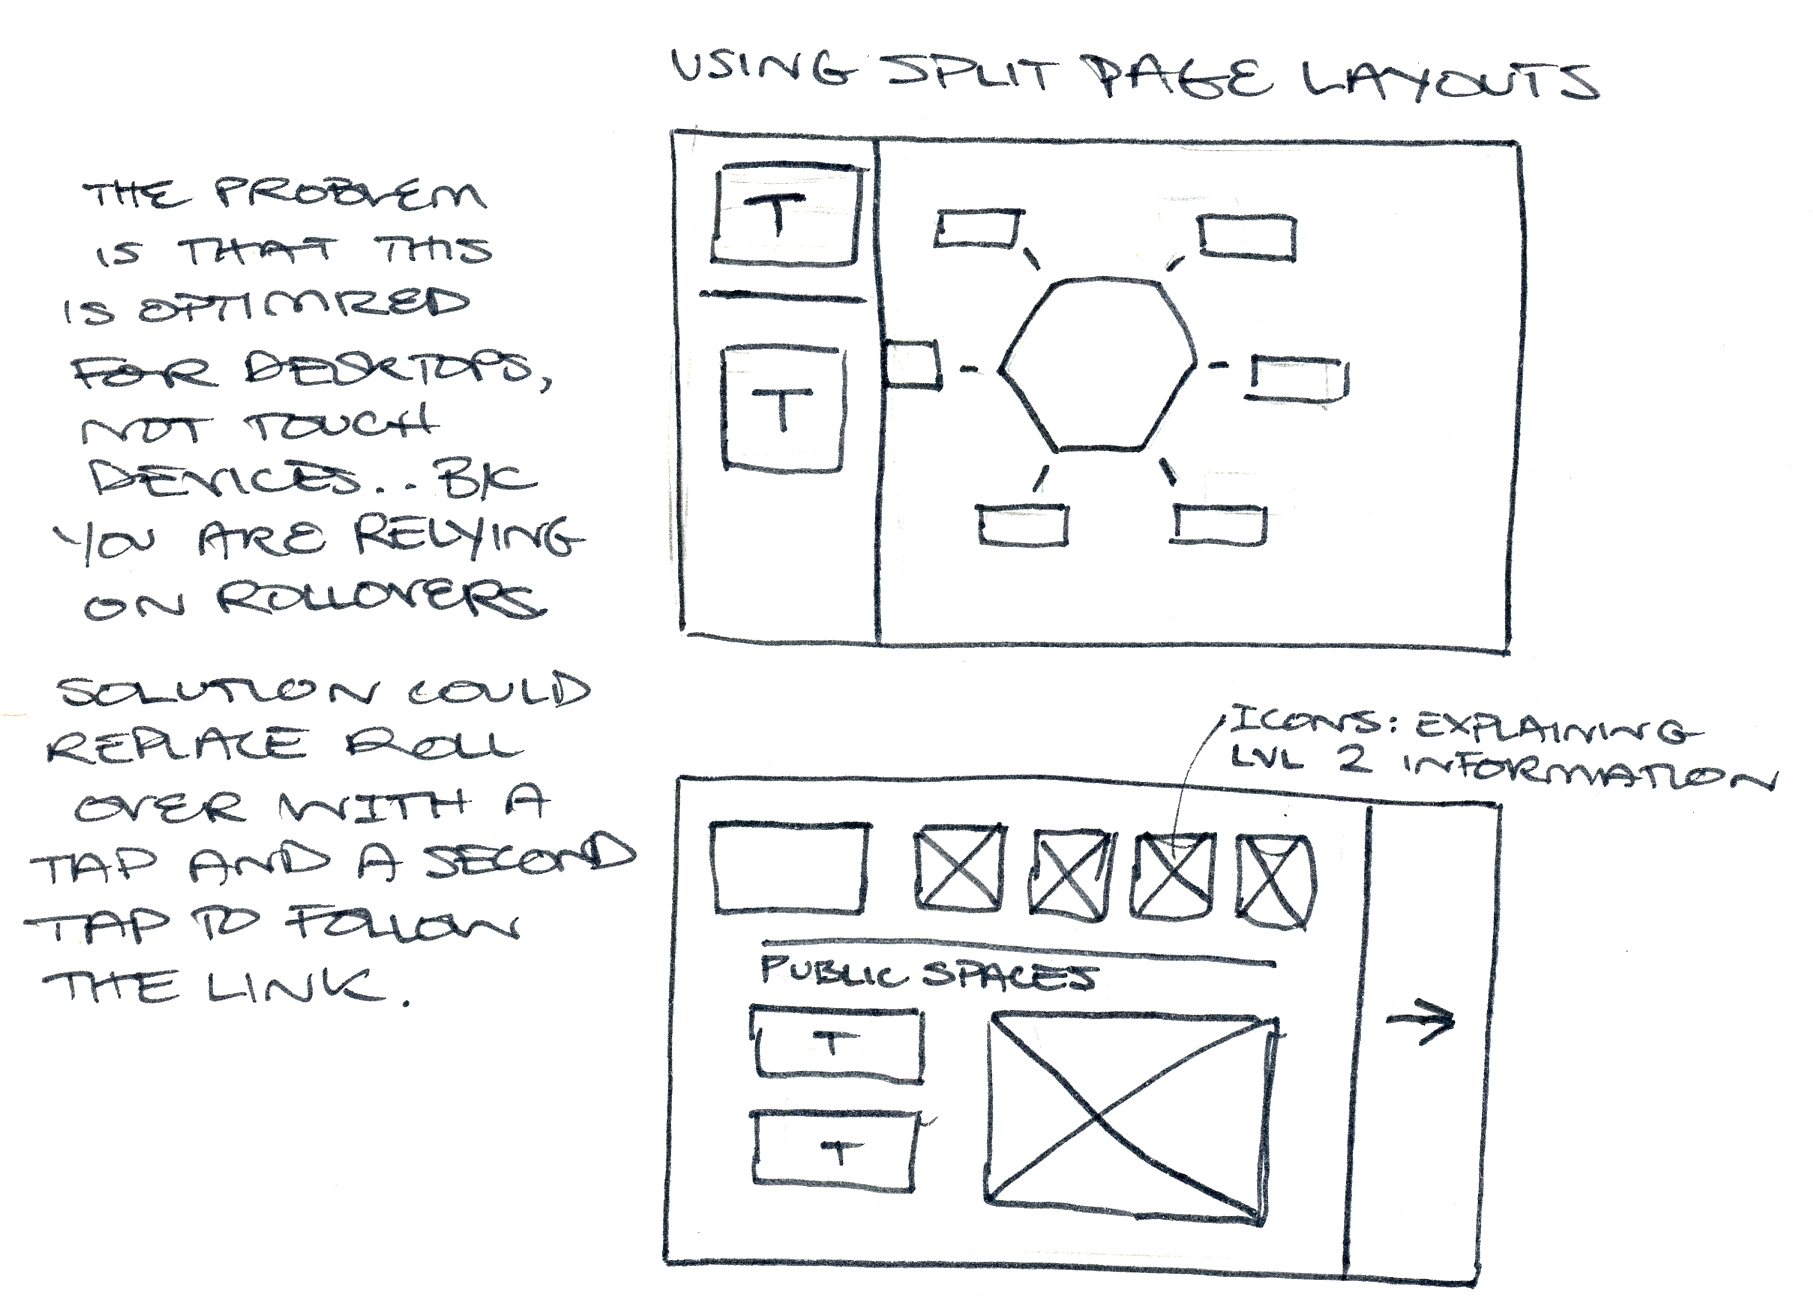 USING SPLIT PAGE LAYOUTS
THE PROBLEM
IS THAT THIS
IS OPTIMIZED
FOR DESKTOPS,
NOT TOUCH
DEVICES.. B/C
YOU ARE RELYING
ON ROLLOVERS
SOLUTION COULD
REPLACE ROLL
OVER WITH A
TAP AND A SECOND
TAP TO FOLLOW
THE LINK.
T
T
ICONS: EXPLAINING
LVL 2 INFORMATION
PUBLIC SPACES
T
T